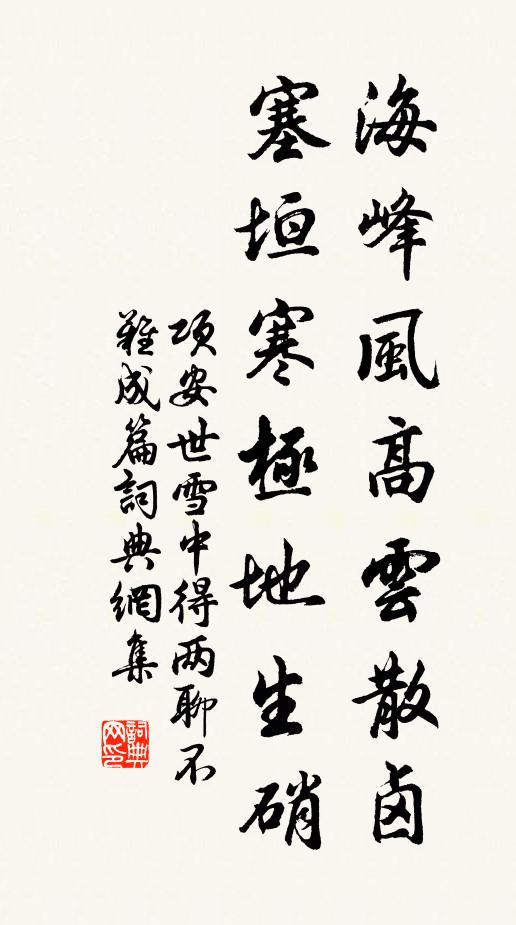 海峰風高雲散鹵
塞垣寒極地生硝
项安世雪中得两聊不
難成篇詞典網集
詞典網印